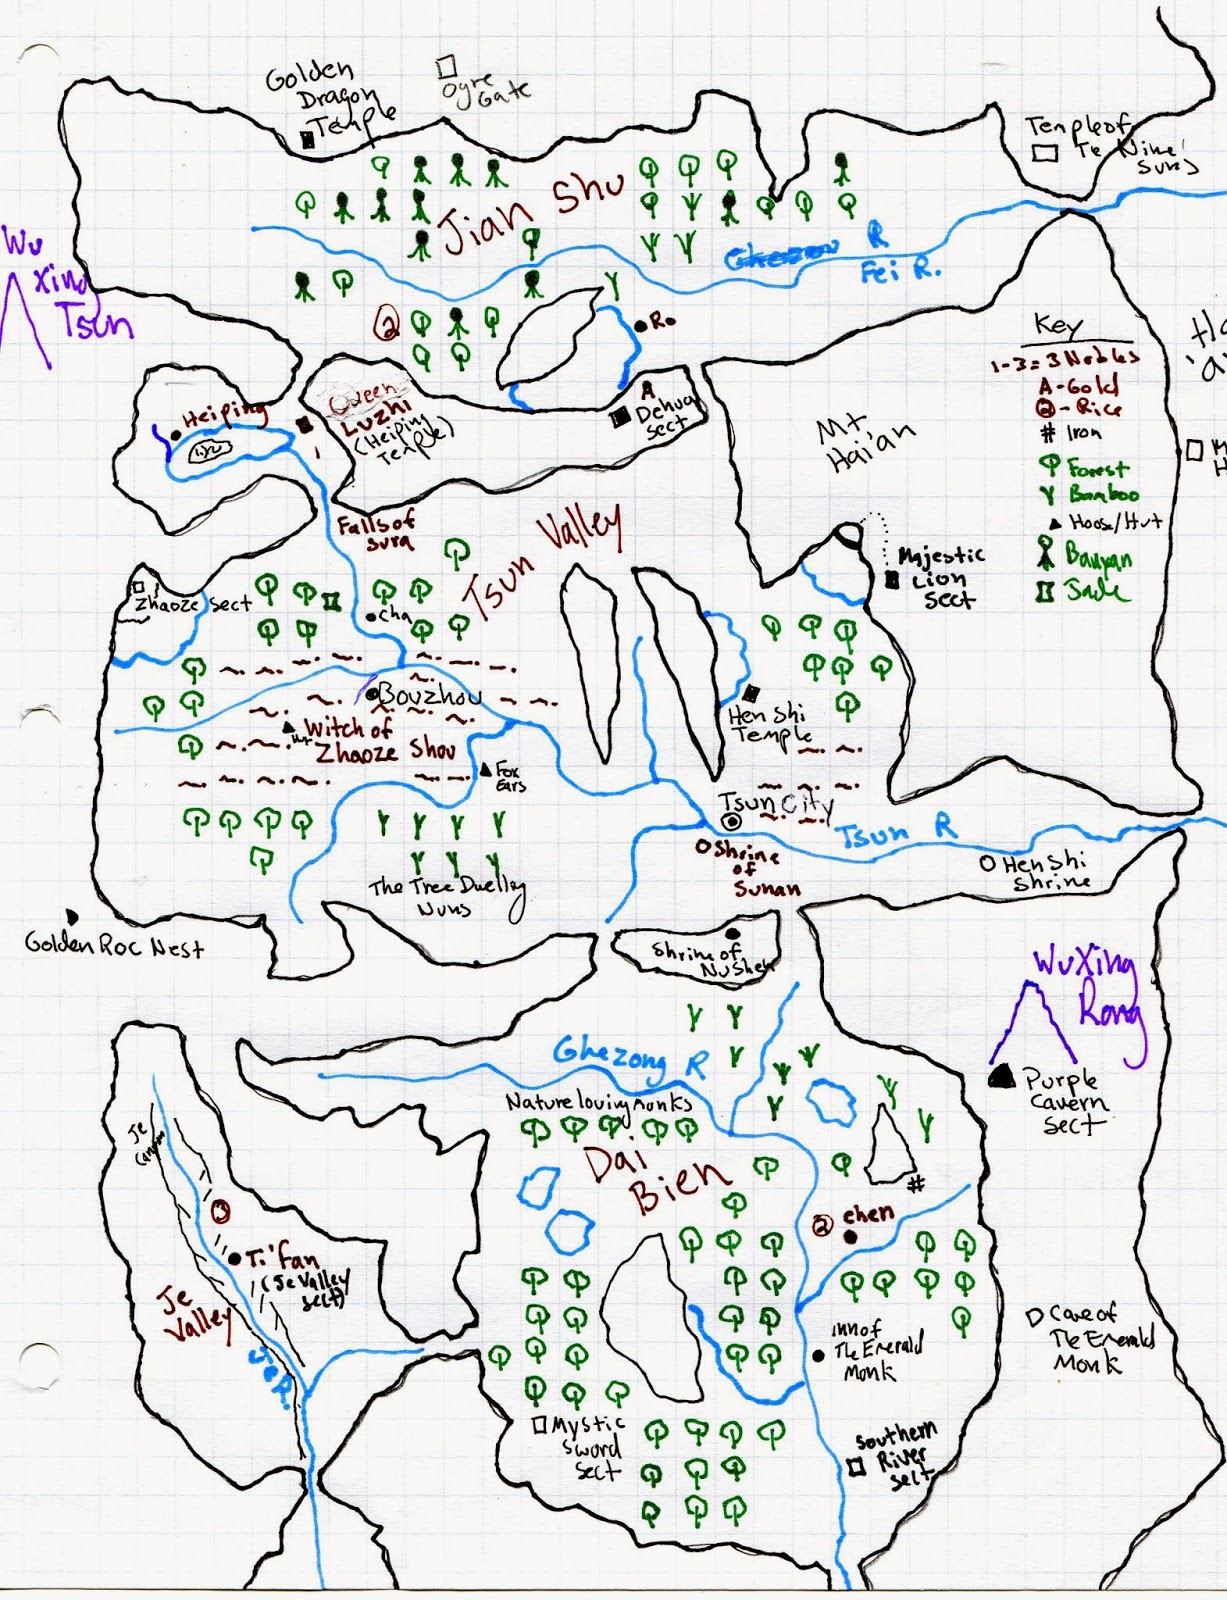 Golden
Dragon
Temple
Ogre
Gate
Temple of
Te Nine
Suns
Jian Shu
Wu
Xing
Tsun
R
Fei R.
2
R.
Key
1-3 = 3 Nobles
A-Gold
2-Rice
# Iron
Forest
Bamboo
House/Hut
Banyan
Jade
Heiping
Queen
Luzhi
(Heiping
Temple)
A
Dehua
Sect
Mt.
Hai'an
Falls of
Sura
Tsun Valley
Majestic
Lion
Sect
Zhaoze Sect
Cha
Bouzhou
Hut
Witch of
Zhaoze Shou
Fox
Ears
Hen Shi
Temple
Tsun City
Tsun R
Shrine
of
Sunan
Hen Shi
Shrine
The Tree Duelley
Nuns
Golden Roc Nest
Shrine of
Nushen
WuXing
Rong
Purple
Cavern
Sect
Ghezong R
Nature loving Monks
Dai
Bien
#
2 Chen
Je
Canyon
Ti'Fan
(Je Valley
Sect)
Je
Valley
Je R.
Inn of
The Emerald
Monk
Cave of
The Emerald
Monk
Mystic
Sword
Sect
Southern
River
Sect